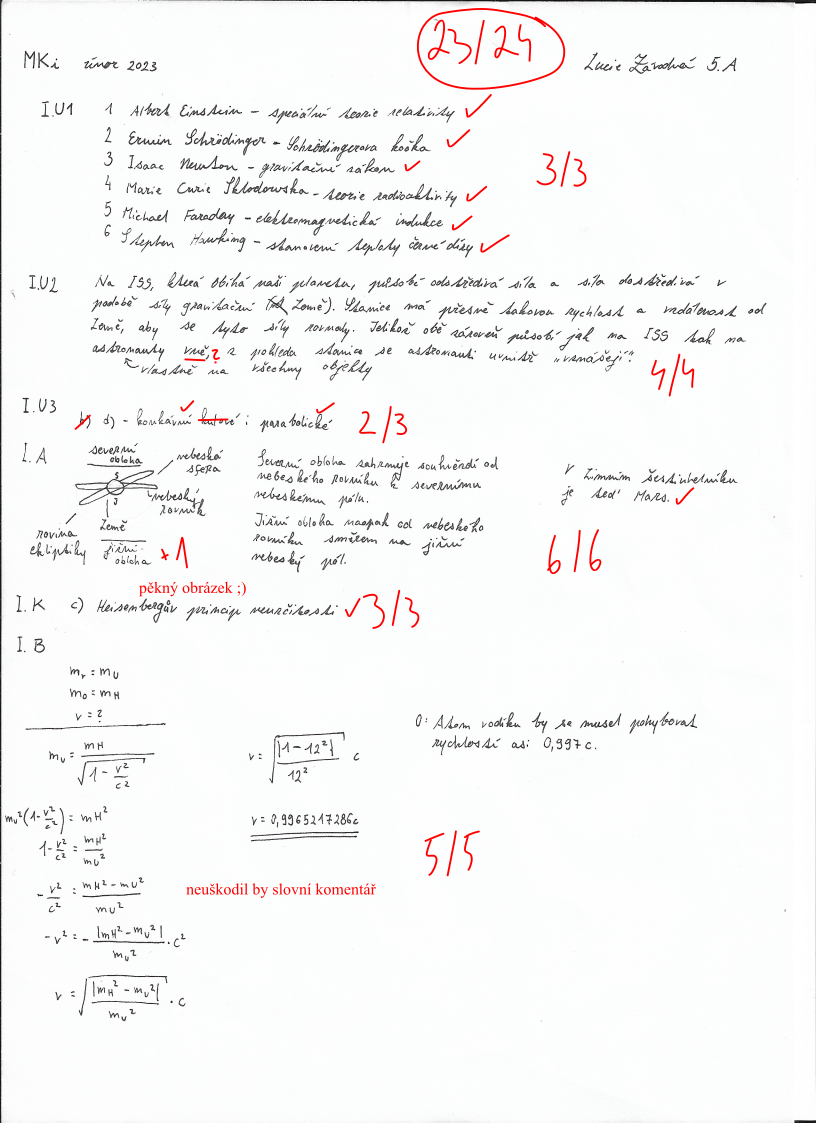 23/24
MKi únor 2023
Lucie Závodná 5.A
I.U1 1 Albert Einstein – speciální teorie relativity ✓
2 Erwin Schrödinger – Schrödingerova kočka ✓
3 Isaac Newton – gravitační zákon ✓
4 Marie Curie Skłodowska – teorie radioaktivity ✓
5 Michael Faraday – elektromagnetická indukce ✓
6 Stephen Hawking – stanovení teploty černé díry ✓
3/3
I.U2 Na ISS, která obíhá naši planetu, působí odstředivá síla a síla dostředivá v
podobě síly gravitační (Země). Stanice má přesně takovou rychlost a vzdálenost od
Země, aby se tyto síly rovnaly. Jelikož obě zároveň působí jak na ISS tak na
astronauty vně,? z pohledu stanice se astronauti uvnitř "vznášejí".
vlastně na všechny objekty
4/4
I.U3 b) d) – konkávní kulové i parabolické 2/3
I.A
severní
obloha
nebeská
sféra
S
J
nebeský
rovník
rovina
ekliptiky
Země
jižní
obloha
+1
pěkný obrázek ;)
Severní obloha zahrnuje souhvězdí od
nebeského rovníku k severnímu
nebeskému pólu.
Jižní obloha naopak od nebeského
rovníku směrem na jižní
nebeský pól.
V Zimním šestiúhelníku
je teď Mars. ✓
6/6
I.K c) Heisenbergův princip neurčitosti ✓ 3/3
I.B
mᵣ = mᵤ
m₀ = mH
v = ?
mᵤ = mH / √(1 – v²/c²)
mᵤ²(1 – v²/c²) = mH²
1 – v²/c² = mH²/mᵤ²
– v²/c² = (mH² – mᵤ²)/mᵤ²
–v² = – |mH² – mᵤ²|/mᵤ² · c²
v = √(|mH² – mᵤ²|/mᵤ²) · c
v = √(|1 – 12²|/12²) c
v = 0,9965217286c
O: Atom vodíku by se musel pohybovat
rychlostí asi 0,997 c.
5/5
neuškodil by slovní komentář